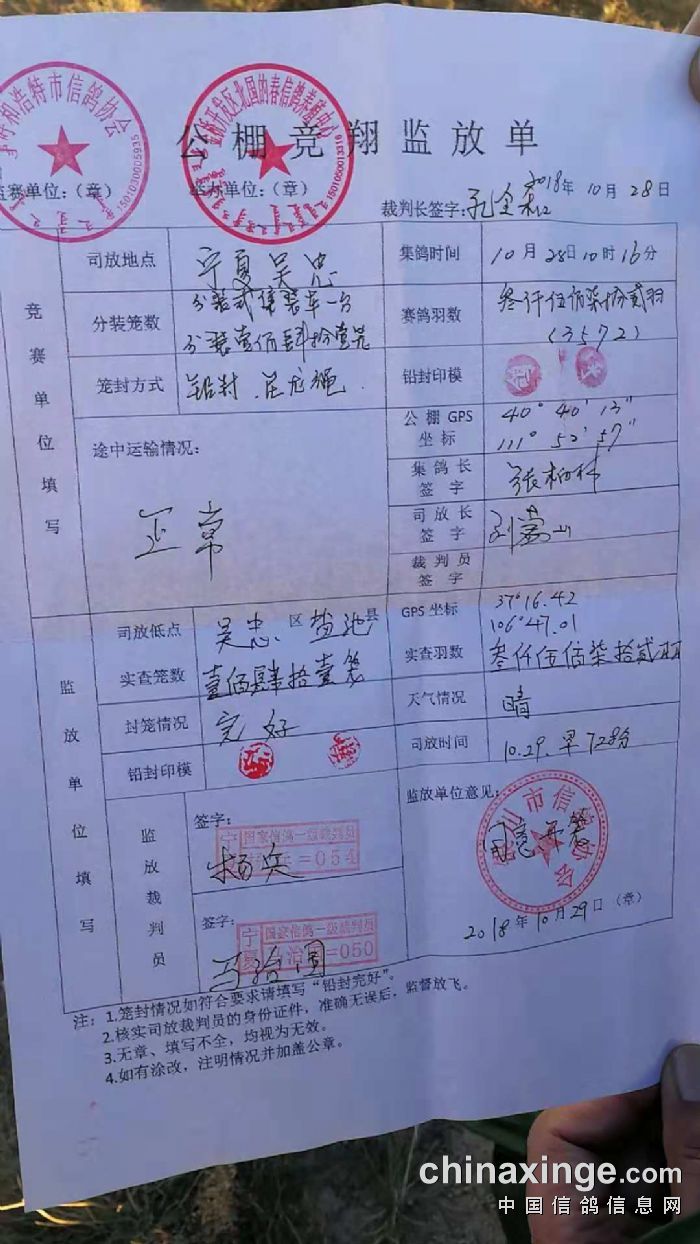 呼和浩特市信鸽协会
1501030005935
金桥开发区北国的春信鸽养殖中心
公棚竞翔监放单
监赛单位：（章）
举办单位：（章）
2018年10月28日
裁判长签字：
竞赛单位填写
司放地点 宁夏吴忠
集鸽时间 10月28日10时16分
分装笼数 分装式集装车一台
分装壹佰肆拾壹笼
赛鸽羽数 叁仟伍佰柒拾贰羽
（3572）
笼封方式 铅封.尼龙绳.
铅封印模
途中运输情况：
正常
公棚GPS坐标 40°40′13″
111°52′57″
集鸽长签字 张柏林
司放长签字
裁判员签字
监放单位填写
司放低点 吴忠区盐池县
GPS坐标 37°16.42
106°47.01
实查笼数 壹佰肆拾壹笼
实查羽数 叁仟伍佰柒拾贰羽
封笼情况 完好
天气情况 晴
铅封印模
司放时间 10.29.早728分
监放裁判员
签字：
宁夏 国家信鸽一级裁判员
杨兵=054
杨兵
签字：
宁夏 国家信鸽一级裁判员
马治国=050
马治国
监放单位意见：
市信鸽协会
2018年10月29日（章）
注：1.笼封情况如符合要求请填写“铅封完好”。
2.核实司放裁判员的身份证件，准确无误后，监督放飞。
3.无章、填写不全，均视为无效。
4.如有涂改，注明情况并加盖公章。
chinaxinge.com
中国信鸽信息网